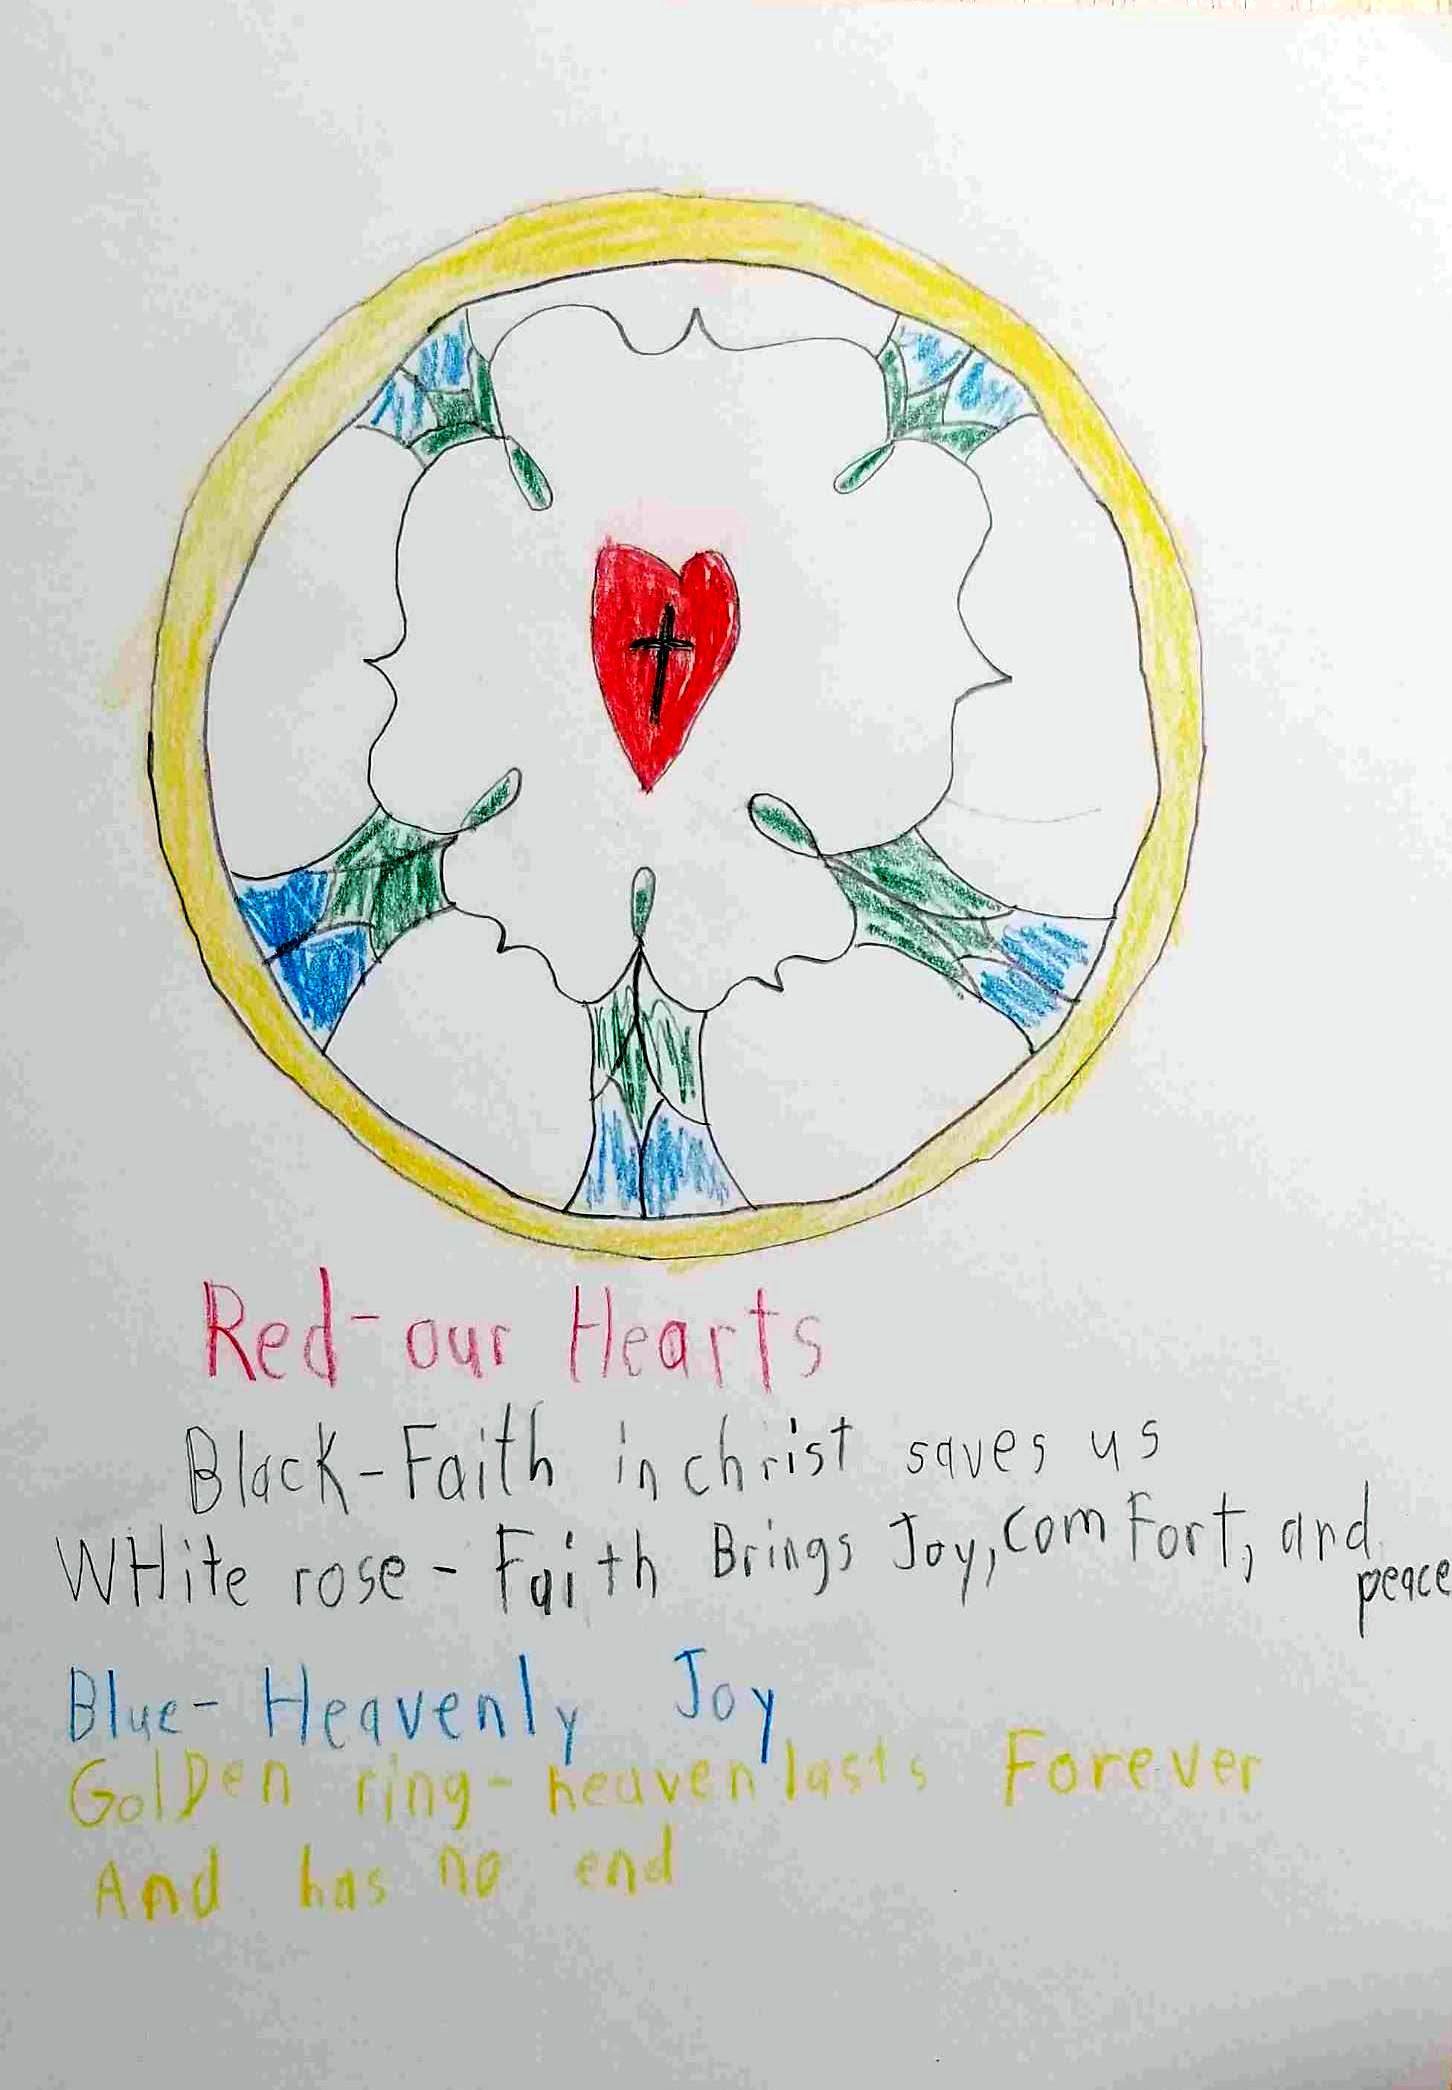 Red-our Hearts
Black-Faith in christ saves us
WHite rose-Faith Brings Joy, comFort, and
peace
Blue-Heavenly Joy
GolDen ring-heaven lasts Forever
And has no end